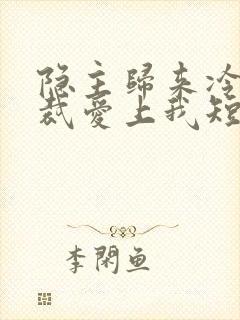 隐主歸来冷
裁愛上我短
李閑鱼